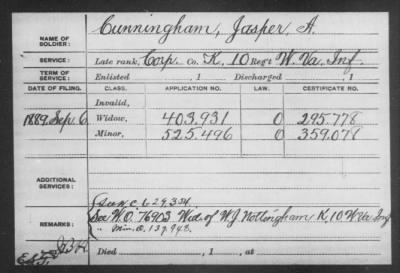 NAME OF SOLDIER: Cunningham, Jasper A.
SERVICE: Late rank, Corp. Co. K, 10 Reg't W. Va. Inf.
TERM OF SERVICE: Enlisted , 1 Discharged , 1
DATE OF FILING. CLASS. APPLICATION NO. LAW. CERTIFICATE NO.
Invalid,
1889, Sep. 6 Widow, 403.931 0 295.778
Minor, 525.496 0 359.078
ADDITIONAL SERVICES:
629.334
REMARKS: See W.O. 76902 Wid. of W J Nottingham K, 10 W Va Inf
" Min. O. 137.948.
Died , 1 , at